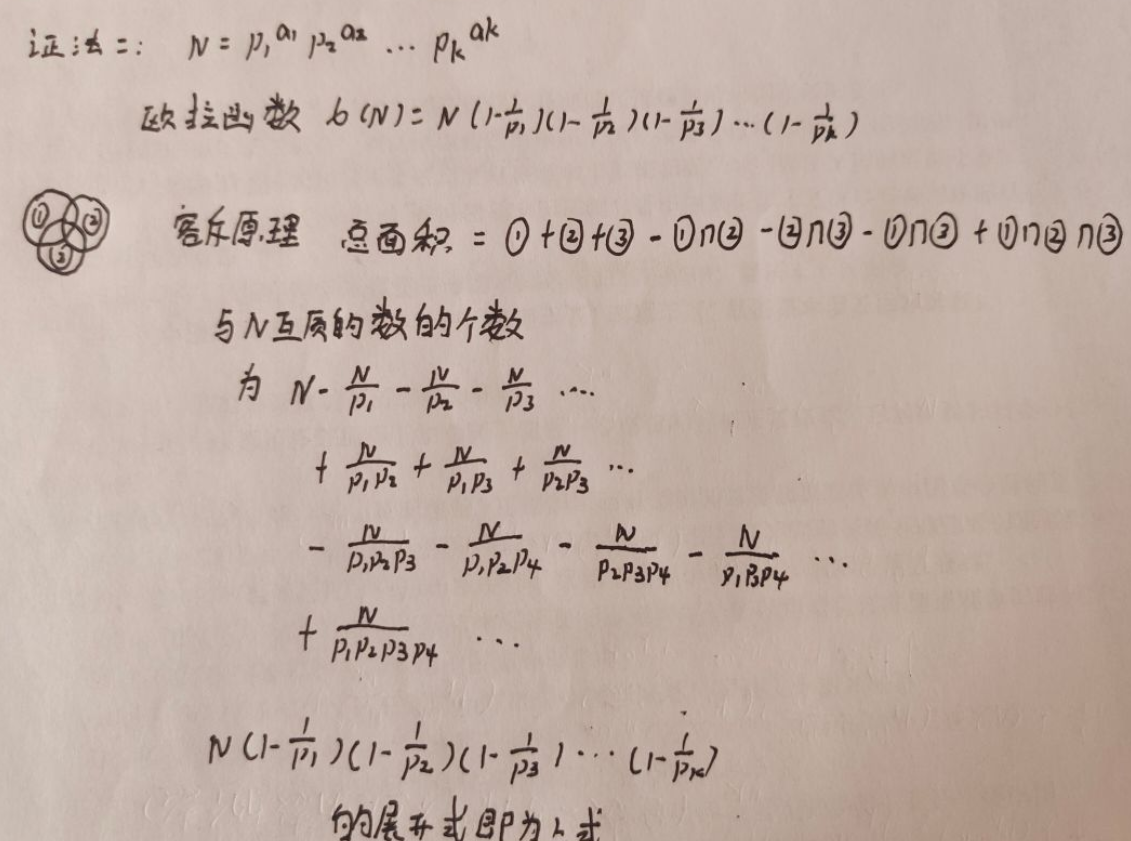 证法二: N = p₁^a₁ p₂^a₂ … pₖ^ak
欧拉函数 b(N) = N(1-1/p₁)(1-1/p₂)(1-1/p₃)…(1-1/pₖ)
① ②
③
容斥原理 总面积 = ①+②+③-①∩②-②∩③-①∩③+①∩②∩③
与N互质的数的个数
为 N - N/p₁ - N/p₂ - N/p₃ …
+ N/p₁p₂ + N/p₁p₃ + N/p₂p₃ …
- N/p₁p₂p₃ - N/p₁p₂p₄ - N/p₂p₃p₄ - N/p₁p₃p₄ …
+ N/p₁p₂p₃p₄ …
N(1-1/p₁)(1-1/p₂)(1-1/p₃)…(1-1/pₖ)
的展开式即为上式